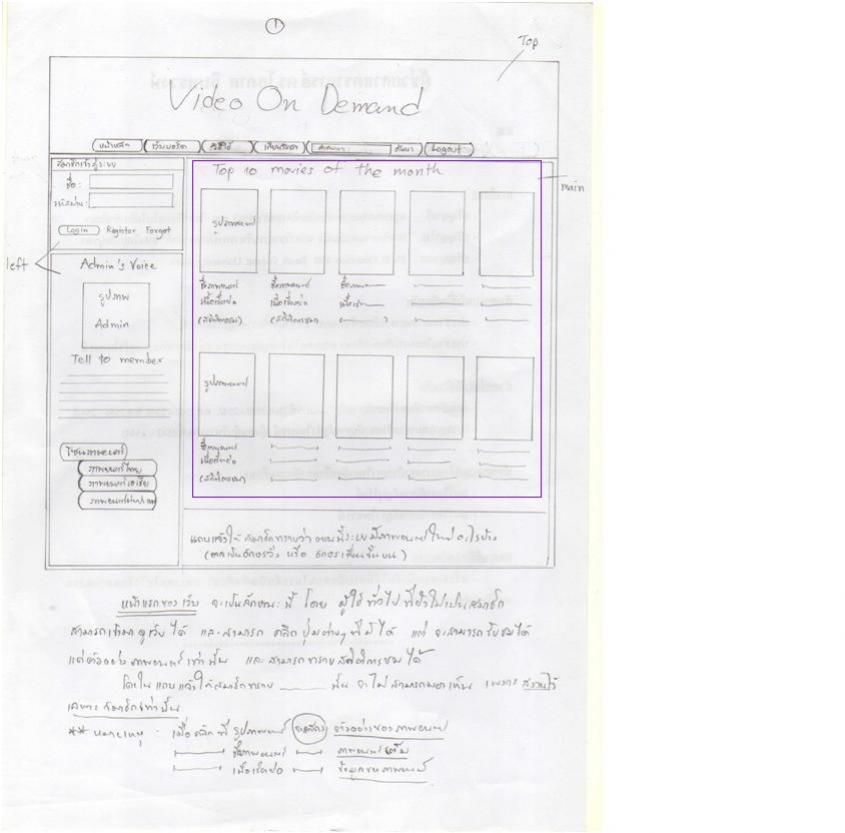 1
Top
Video On Demand
หน้าหลัก เว็บบอร์ด วิธีใช้ เกี่ยวกับเรา ค้นหา Logout
สมาชิกเข้าสู่ระบบ
ชื่อ :
รหัสผ่าน :
Login Register Forgot
left
Admin's Voice
รูปภาพ
Admin
Tell to member
โซนภาพยนตร์
ภาพยนตร์ไทย
ภาพยนตร์เอเชีย
Top 10 movies of the month
main
รูปภาพยนตร์
ชื่อภาพยนตร์ ชื่อภาพยนตร์
เนื้อเรื่องย่อ เนื้อเรื่องย่อ
(สถิติการชม) (สถิติการชม)
รูปภาพยนตร์
ชื่อภาพยนตร์
เนื้อเรื่องย่อ
(สถิติการชม)
แถบแจ้งให้สมาชิกทราบว่า ตอนนี้ระบบมีภาพยนตร์ใหม่อะไรบ้าง
( อาจเป็นอักษรวิ่ง หรือ อักษรเลื่อนขึ้นบน )
หน้าแรกของเว็บ จะเป็นลักษณะนี้ โดย ผู้ใช้ทั่วไป ที่ยังไม่เป็นสมาชิก
สามารถเข้ามาดูเว็บได้ และสามารถ คลิกปุ่มต่างๆ ที่มีได้ แต่ จะสามารถรับชมได้
แค่ตัวอย่างภาพยนตร์เท่านั้น และสามารถทราบสถิติการชมได้
โดยในแถบแจ้งให้สมาชิกทราบ นั้น จะไม่สามารถมองเห็น เพราะสงวนไว้
เฉพาะสมาชิกเท่านั้น
** หมายเหตุ : เมื่อคลิกที่ รูปภาพยนตร์ ตัวอย่างของภาพยนตร์
ชื่อภาพยนตร์ ภาพยนตร์เต็ม
เนื้อเรื่องย่อ ข้อมูลของภาพยนตร์